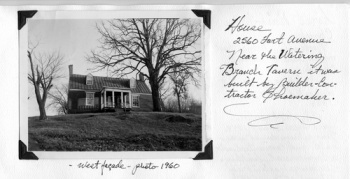 House
2560 Fort Avenue
Near the Watering
Branch Tavern it was
built by Builder-Con-
tractor Shoemaker.
- West façade - photo 1960